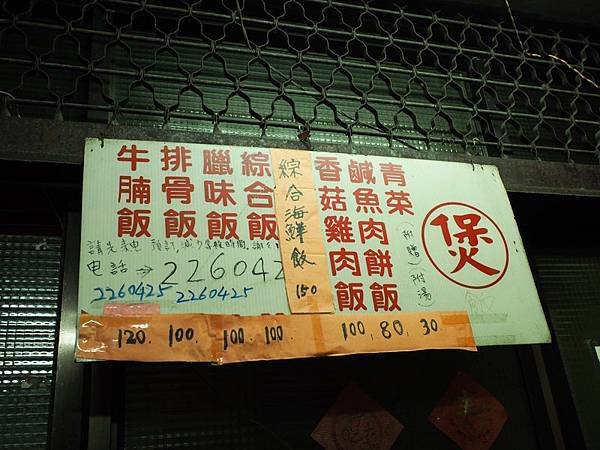 煲
青菜
(附贈)
(附湯)
鹹魚肉餅飯
香菇雞肉飯
綜合海鮮飯
150
綜合飯
臘味飯
排骨飯
牛腩飯
請先來電 預訂,減少等候時間,謝
电話→226042
2260425 2260425
120. 100. 100. 100. 100, 80, 30